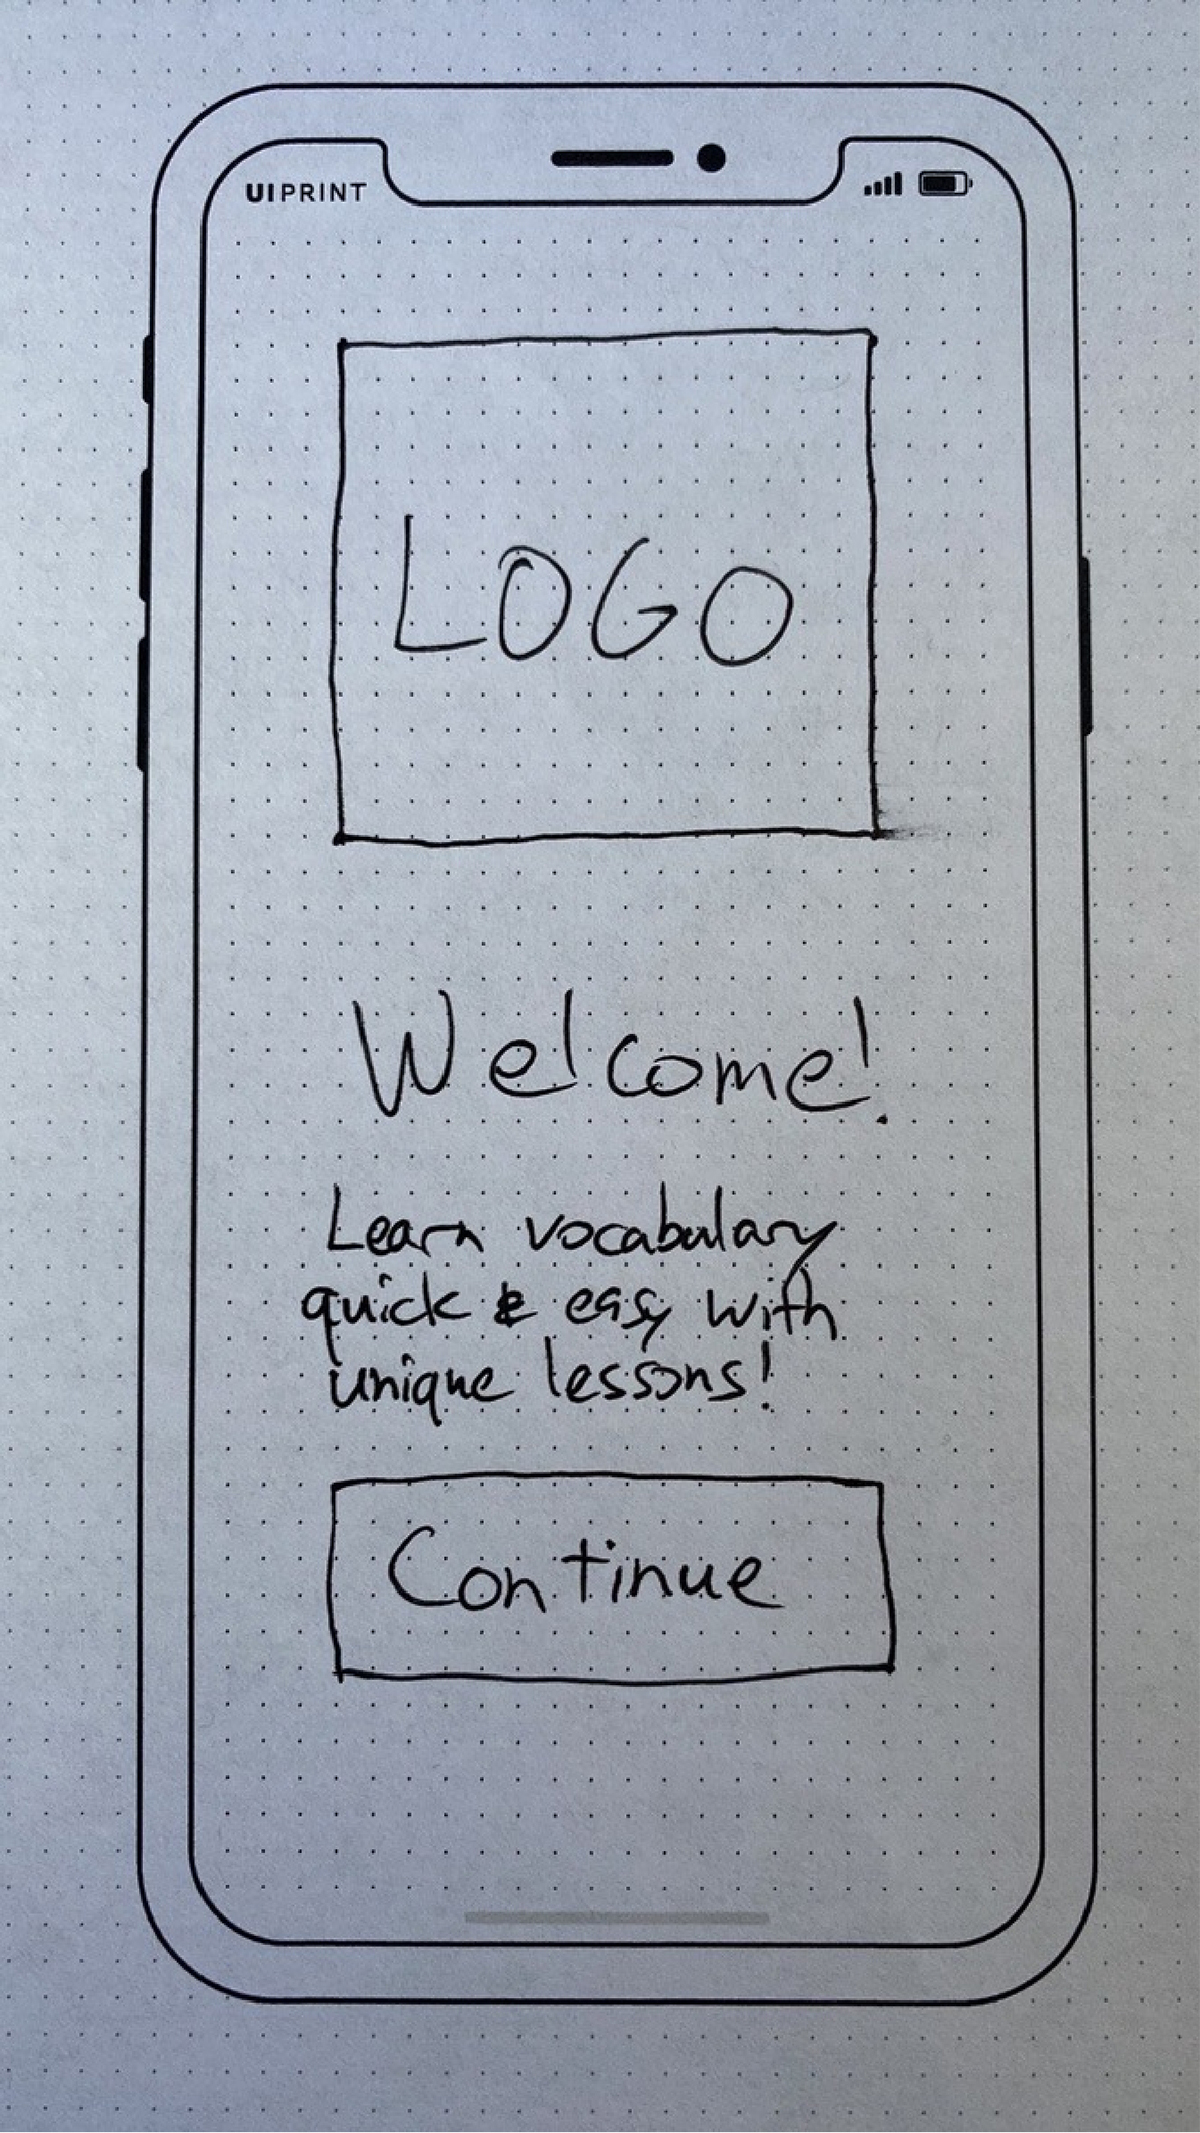 UIPRINT
LOGO
Welcome!
Learn vocabulary
quick & easy with
unique lessons!
Continue